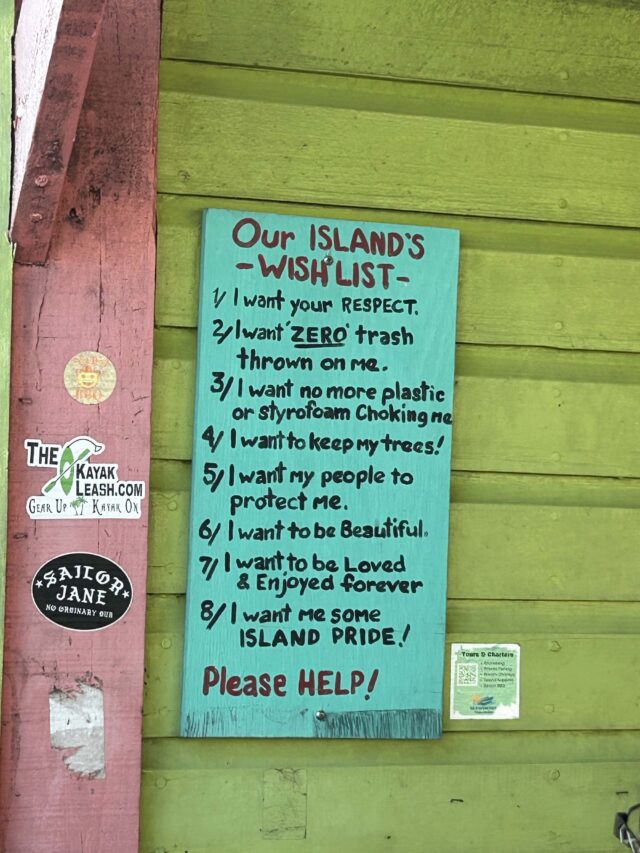 Our ISLAND'S
-WISH LIST-
1/ I want your RESPECT.
2/ I want 'ZERO' trash
thrown on me.
3/ I want no more plastic
or styrofoam Choking me
4/ I want to keep my trees!
5/ I want my people to
protect me.
6/ I want to be Beautiful.
7/ I want to be Loved
& Enjoyed forever
8/ I want me some
ISLAND PRIDE!
Please HELP!
THE
KAYAK
LEASH.COM
GEAR UP KAYAK ON
SAILOR
JANE
NO ORDINARY SUB
Tours & Charters